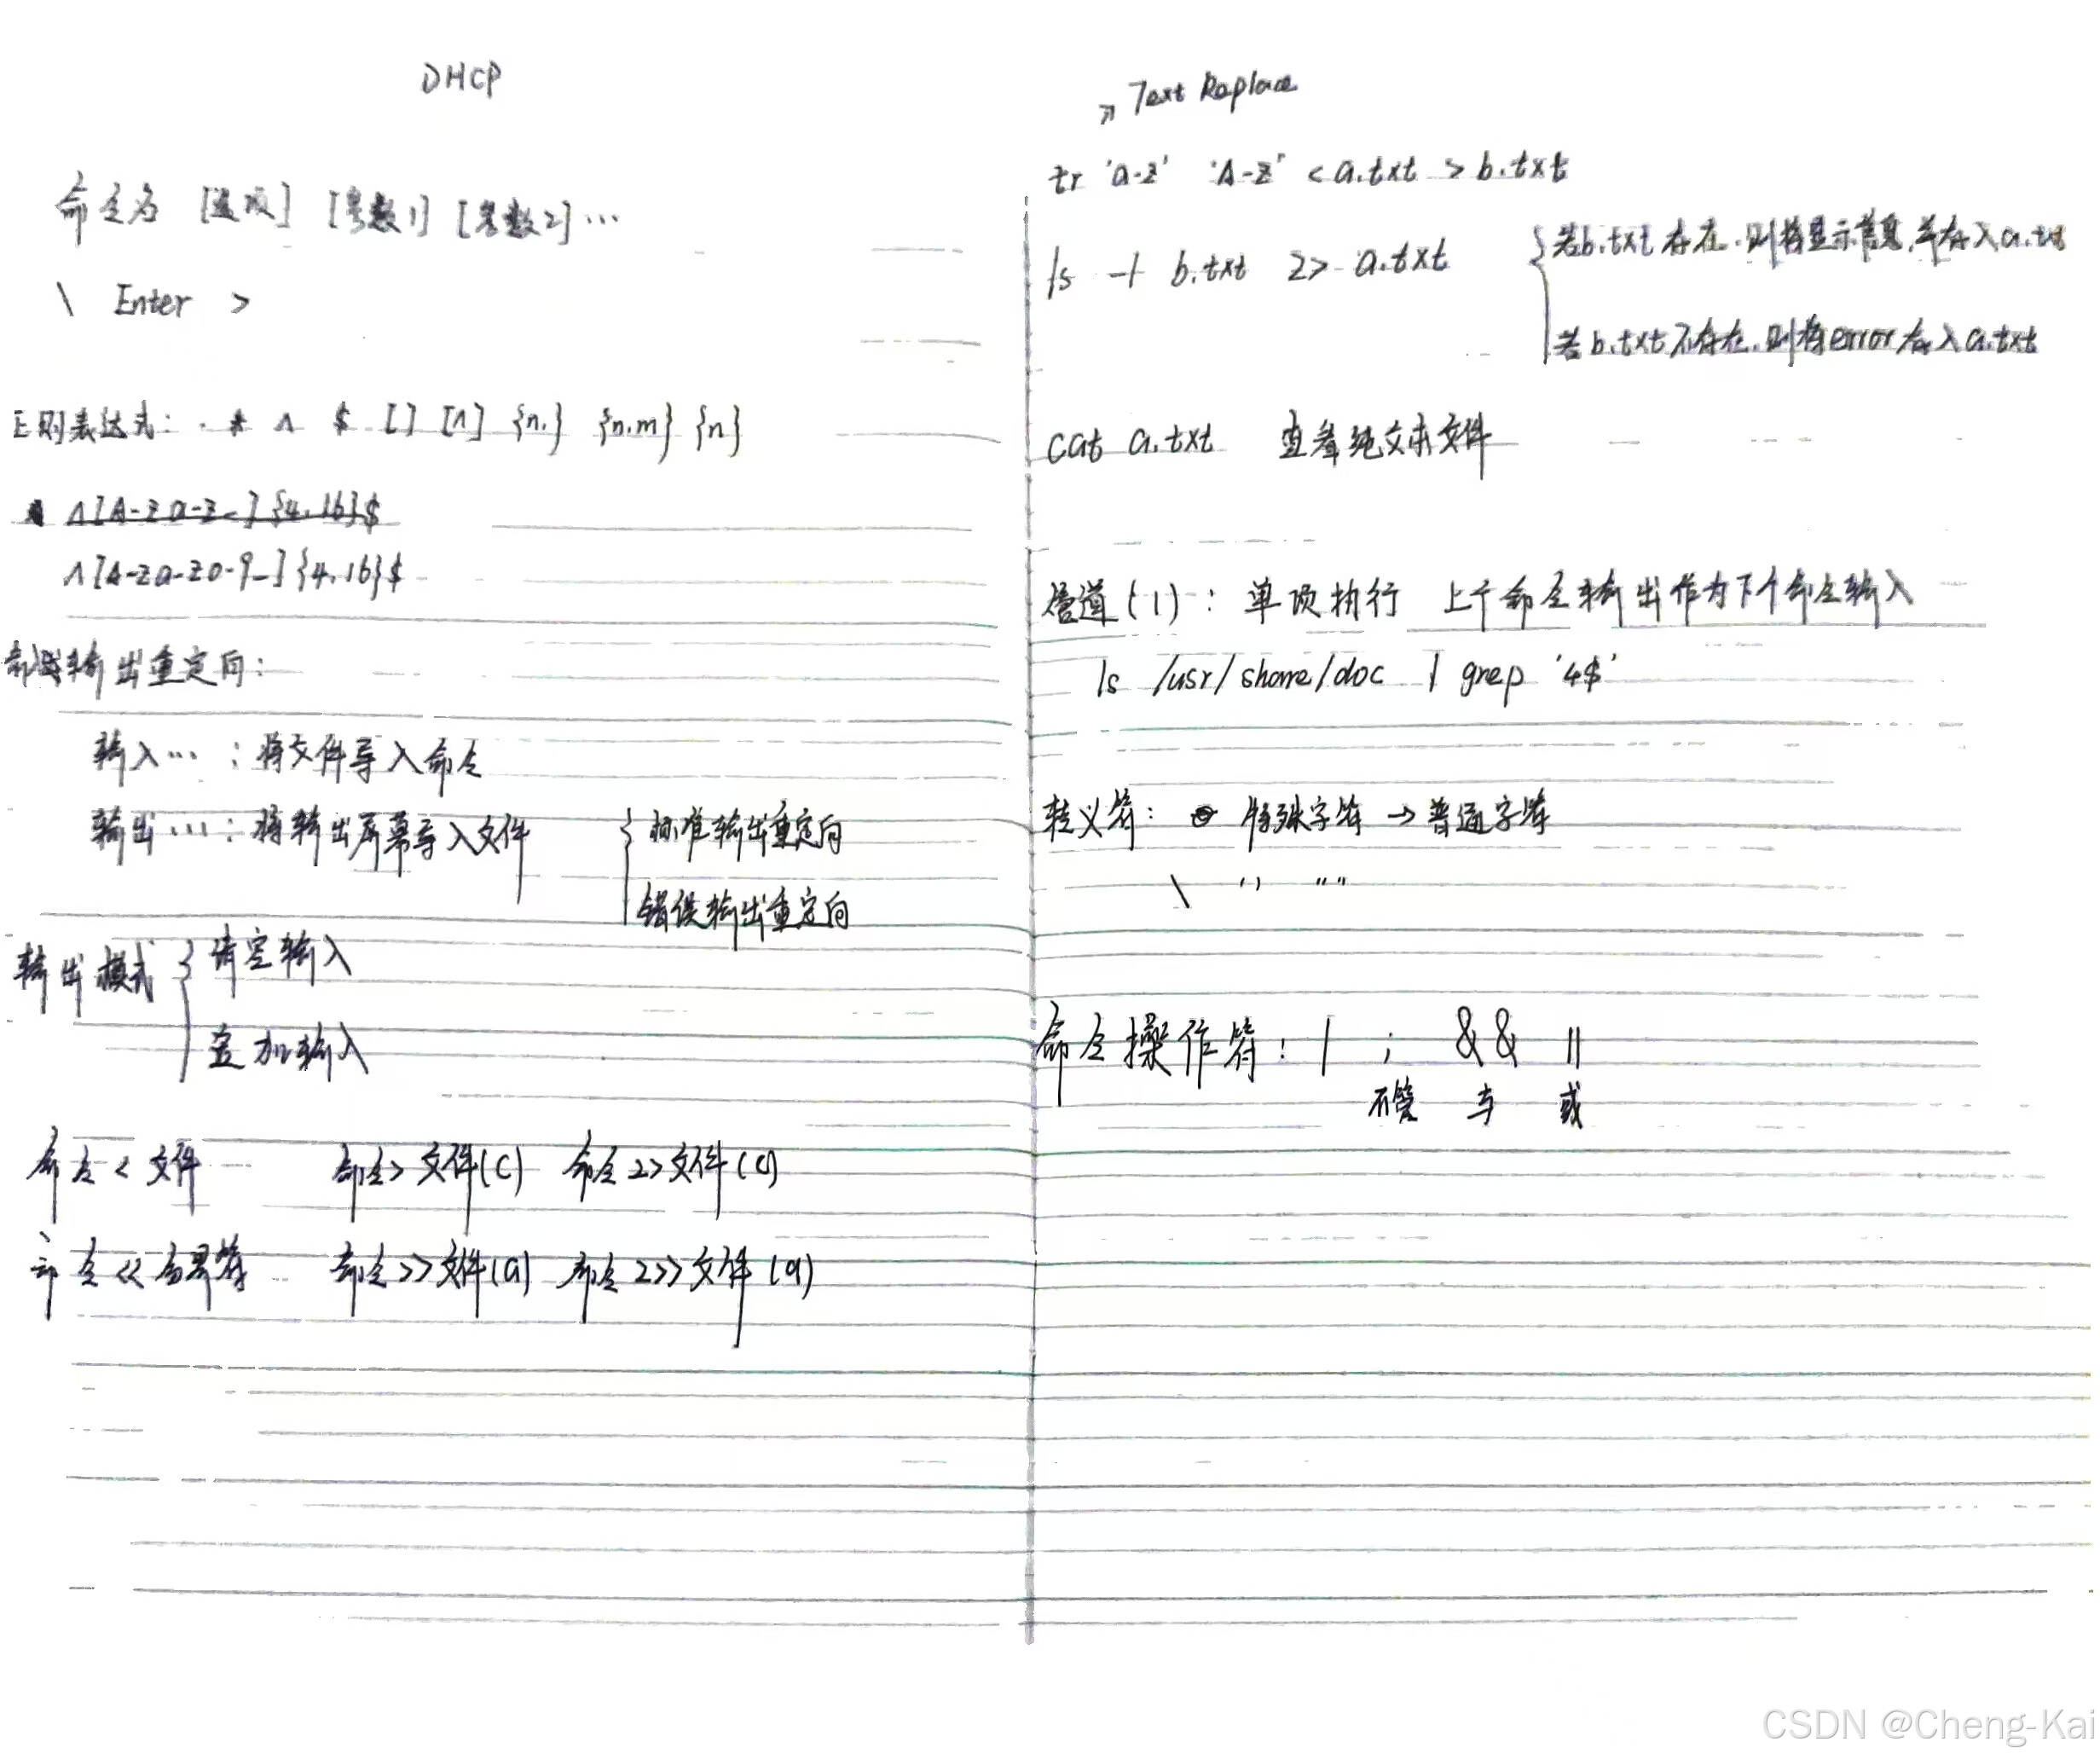 DHCP
命令名 [选项] [参数1] [参数2]…
\ Enter >
正则表达式: . * ^ $ [] [^] {n,} {n,m} {n}
^[A-Za-z_]{4,16}$
^[A-Za-z0-9_]{4,16}$
输出重定向:
输入… : 将文件导入命令
输出… : 将输出屏幕导入文件 { 标准输出重定向
错误输出重定向
输出模式 { 清空输入
追加输入
命令 < 文件 命令 > 文件(c) 命令 2> 文件(c)
命令 << 分界符 命令 >> 文件(a) 命令 2>> 文件(a)
↗ Text Replace
tr 'a-z' 'A-Z' < a.txt > b.txt
ls -l b.txt 2> a.txt { 若b.txt存在,则将显示信息,并存入a.txt
若b.txt不存在,则将error存入a.txt
cat a.txt 查看纯文本文件
管道(|): 单项执行 上个命令输出作为下个命令输入
ls /usr/share/doc | grep '4$'
转义符: 特殊字符 → 普通字符
\ '' ""
命令操作符: | ; && ||
不管 与 或
CSDN @Cheng-Kai